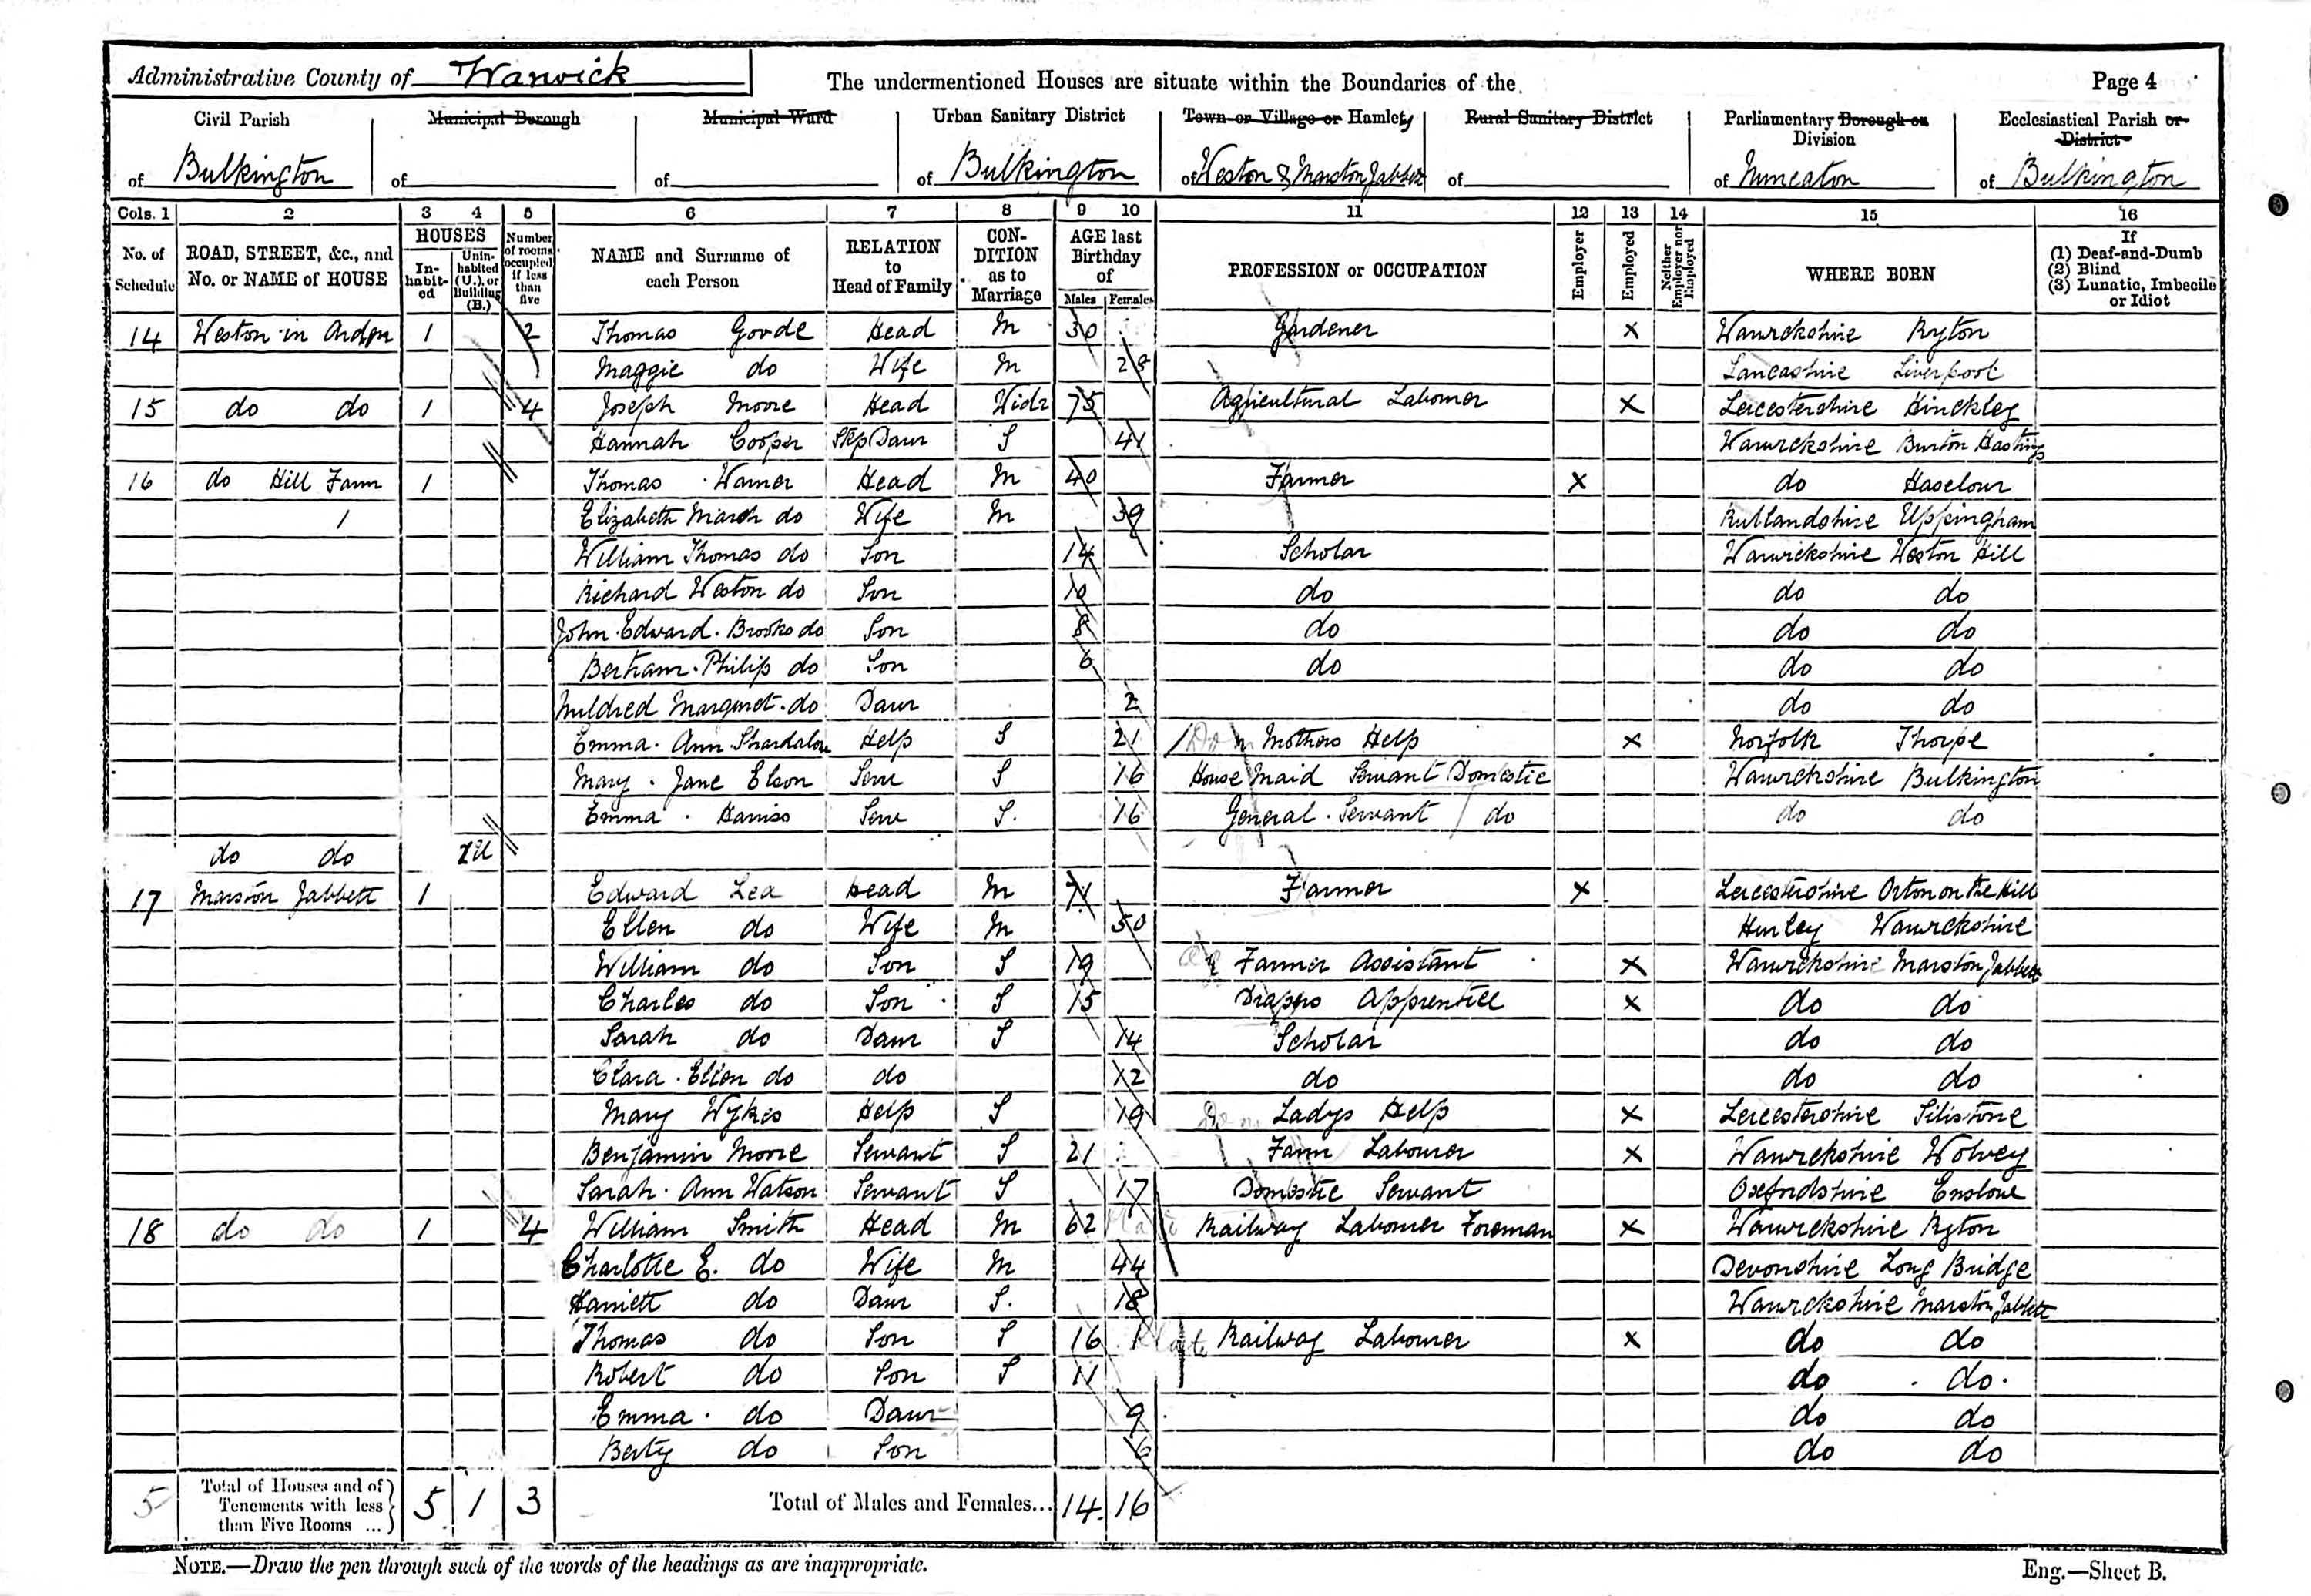 Administrative County of Warwick
The undermentioned Houses are situate within the Boundaries of the
Page 4
Civil Parish of Bulkington
Municipal Borough of
Municipal Ward of
Urban Sanitary District of Bulkington
Town or Village or Hamlet of Weston & Marston Jabbett
Rural Sanitary District of
Parliamentary Borough or Division of Nuneaton
Ecclesiastical Parish or District of Bulkington
Cols. 1 2 3 4 5 6 7 8 9 10 11 12 13 14 15 16
No. of Schedule
ROAD, STREET, &c., and No. or NAME of HOUSE
HOUSES
In-habit-ed
Unin-habited (U.), or Building (B.)
Number of rooms occupied if less than five
NAME and Surname of each Person
RELATION to Head of Family
CON-DITION as to Marriage
AGE last Birthday of
Males Females
PROFESSION or OCCUPATION
Employer
Employed
Neither Employer nor Employed
WHERE BORN
If (1) Deaf-and-Dumb (2) Blind (3) Lunatic, Imbecile or Idiot
14 Weston in Arden 1 2 Thomas Goode Head M 30 Gardener X Warwickshire Ryton
Maggie do Wife M 28 Lancashire Liverpool
15 do do 1 4 Joseph Moore Head Widr 75 Agricultural Labourer X Leicestershire Hinckley
Hannah Cooper Step Daur S 41 Warwickshire Burton Hastings
16 do Hill Farm 1 Thomas Warner Head M 40 Farmer X do Haselour
1 Elizabeth March do Wife M 39 Rutlandshire Uppingham
William Thomas do Son 14 Scholar Warwickshire Weston Hill
Richard Weston do Son 10 do do do
John Edward Brooks do Son 8 do do do
Bertram Philip do Son 6 do do do
Mildred Margaret do Daur 2 do do
Emma Ann Shardalow Help S 21 Dom Mothers Help X Norfolk Thorpe
Mary Jane Elson Serv S 16 House Maid Servant Domestic Warwickshire Bulkington
Emma Harriss Serv S. 16 General Servant do do do
do do 1U
17 Marston Jabbett 1 Edward Lea Head M 71 Farmer X Leicestershire Orton on the Hill
Ellen do Wife M 50 Hurley Warwickshire
William do Son S 19 Farmer Assistant X Warwickshire Marston Jabbett
Charles do Son S 15 Drapers Apprentice X do do
Sarah do Daur S 14 Scholar do do
Clara Ellen do do 12 do do do
Mary Wykes Help S 19 Dom Ladys Help X Leicestershire Silistone
Benjamin Moore Servant S 21 Farm Labourer X Warwickshire Wolvey
Sarah Ann Watson Servant S 17 Domestic Servant Oxfordshire Enslow
18 do do 1 4 William Smith Head M 62 Railway Labourer Foreman X Warwickshire Ryton
Charlotte E. do Wife M 44 Devonshire Long Bridge
Harriett do Daur S. 18 Warwickshire Marston Jabbett
Thomas do Son S 16 Railway Labourer X do do
Robert do Son S 11 do do
Emma do Daur 9 do do
Berty do Son 6 do do
5 Total of Houses and of Tenements with less than Five Rooms ... 5 1 3 Total of Males and Females... 14 16
NOTE.—Draw the pen through such of the words of the headings as are inappropriate.
Eng.—Sheet B.